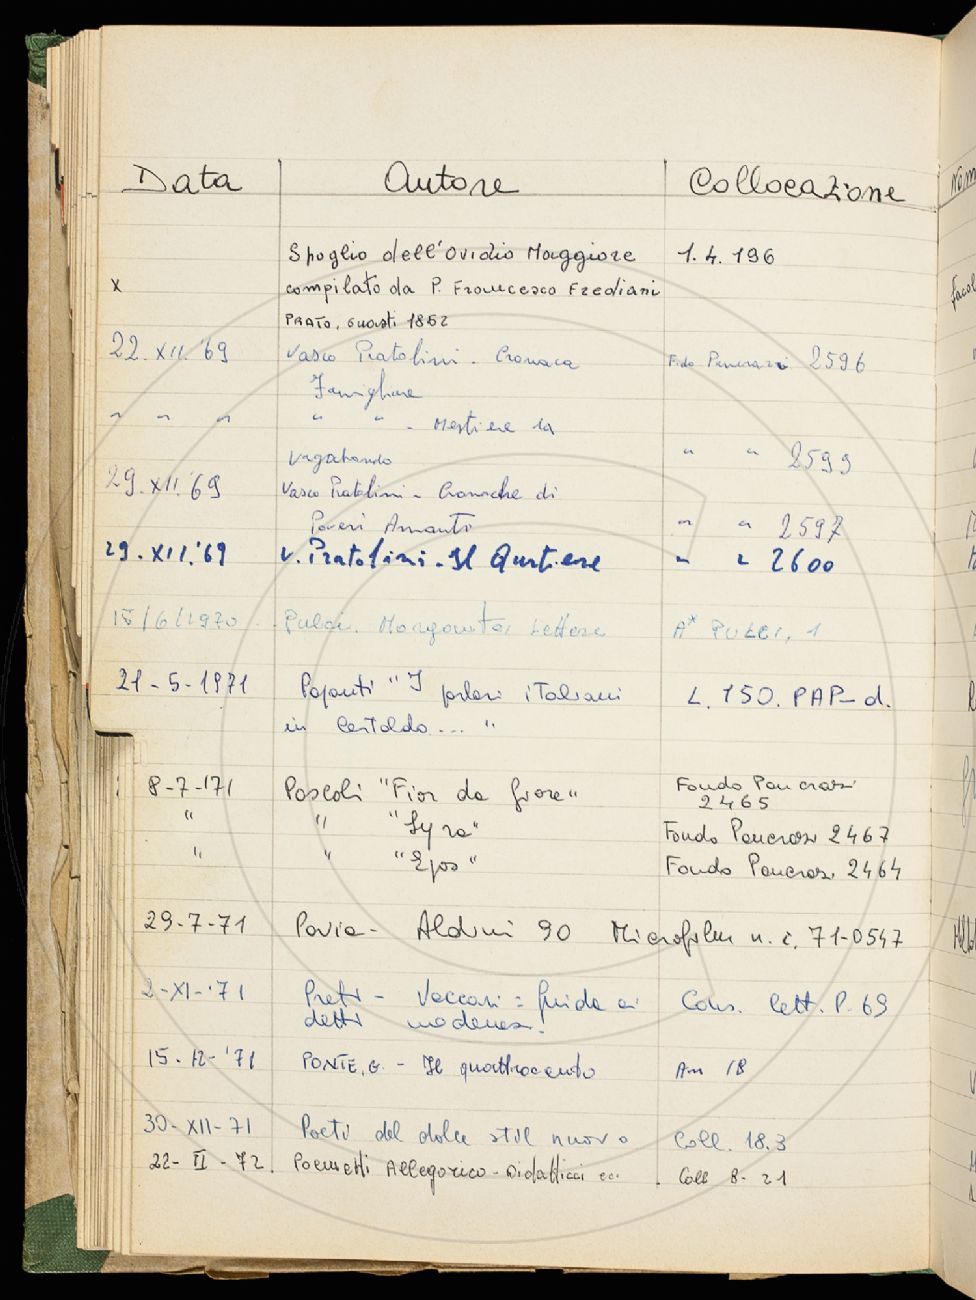 Data Autore Collocazione
Spoglio dell'Ovidio Maggiore 1.4.196
x compilato da P. Francesco Frediani
PRATO, Guasti 1852
22.XII.'69 Vasco Pratolini - Cronaca Fdo Pancrazi 2596
Famigliare
" " " " " - Mestiere da
vagabondo " " 2599
29.XII.'69 Vasco Pratolini - Cronache di
Poveri Amanti " " 2597
29.XII.'69 V. Pratolini - Il Quartiere " " 2600
15/6/1970 Pulci. Morgante, Lettere A* PULCI, 1
21-5-1971 Papanti "I parlari italiani L. 150. PAP-d.
in Certaldo... "
8-7-'71 Pascoli "Fior da fiore" Fondo Pancrazi
2465
" " "Lyra" Fondo Pancrazi 2467
" " "Epos" Fondo Pancrazi 2464
29-7-71 Pavia - Aldini 90 Microfilm n. i. 71-0547
2-XI-'71 Preti - Vaccari = Guida ai Cons. lett. P. 69
detti modenesi!
15-12-'71 PONTE, G. - Il quattrocento Am 18
30-XII-71 Poeti del dolce stil nuovo Coll. 18.3
22-II-72. Poemetti Allegorico-Didattici ecc. Coll 8-21